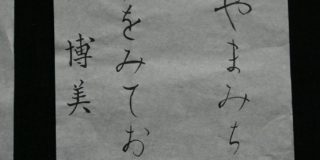 やまみち
をみてお
博美